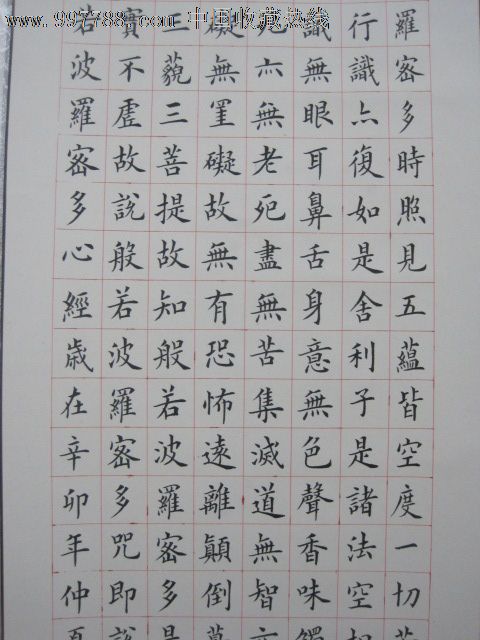 www.997788.com 中国收藏热线
羅密多時照見五蘊皆空度一切
行識亦復如是舍利子是諸法空相
識無眼耳鼻舌身意無色聲香味觸
死亦無老死盡無苦集滅道無智亦
礙無罣礙故無有恐怖遠離顛倒夢
三藐三菩提故知般若波羅密多是
實不虛故說般若波羅密多咒即說
若波羅密多心經歲在辛卯年仲夏